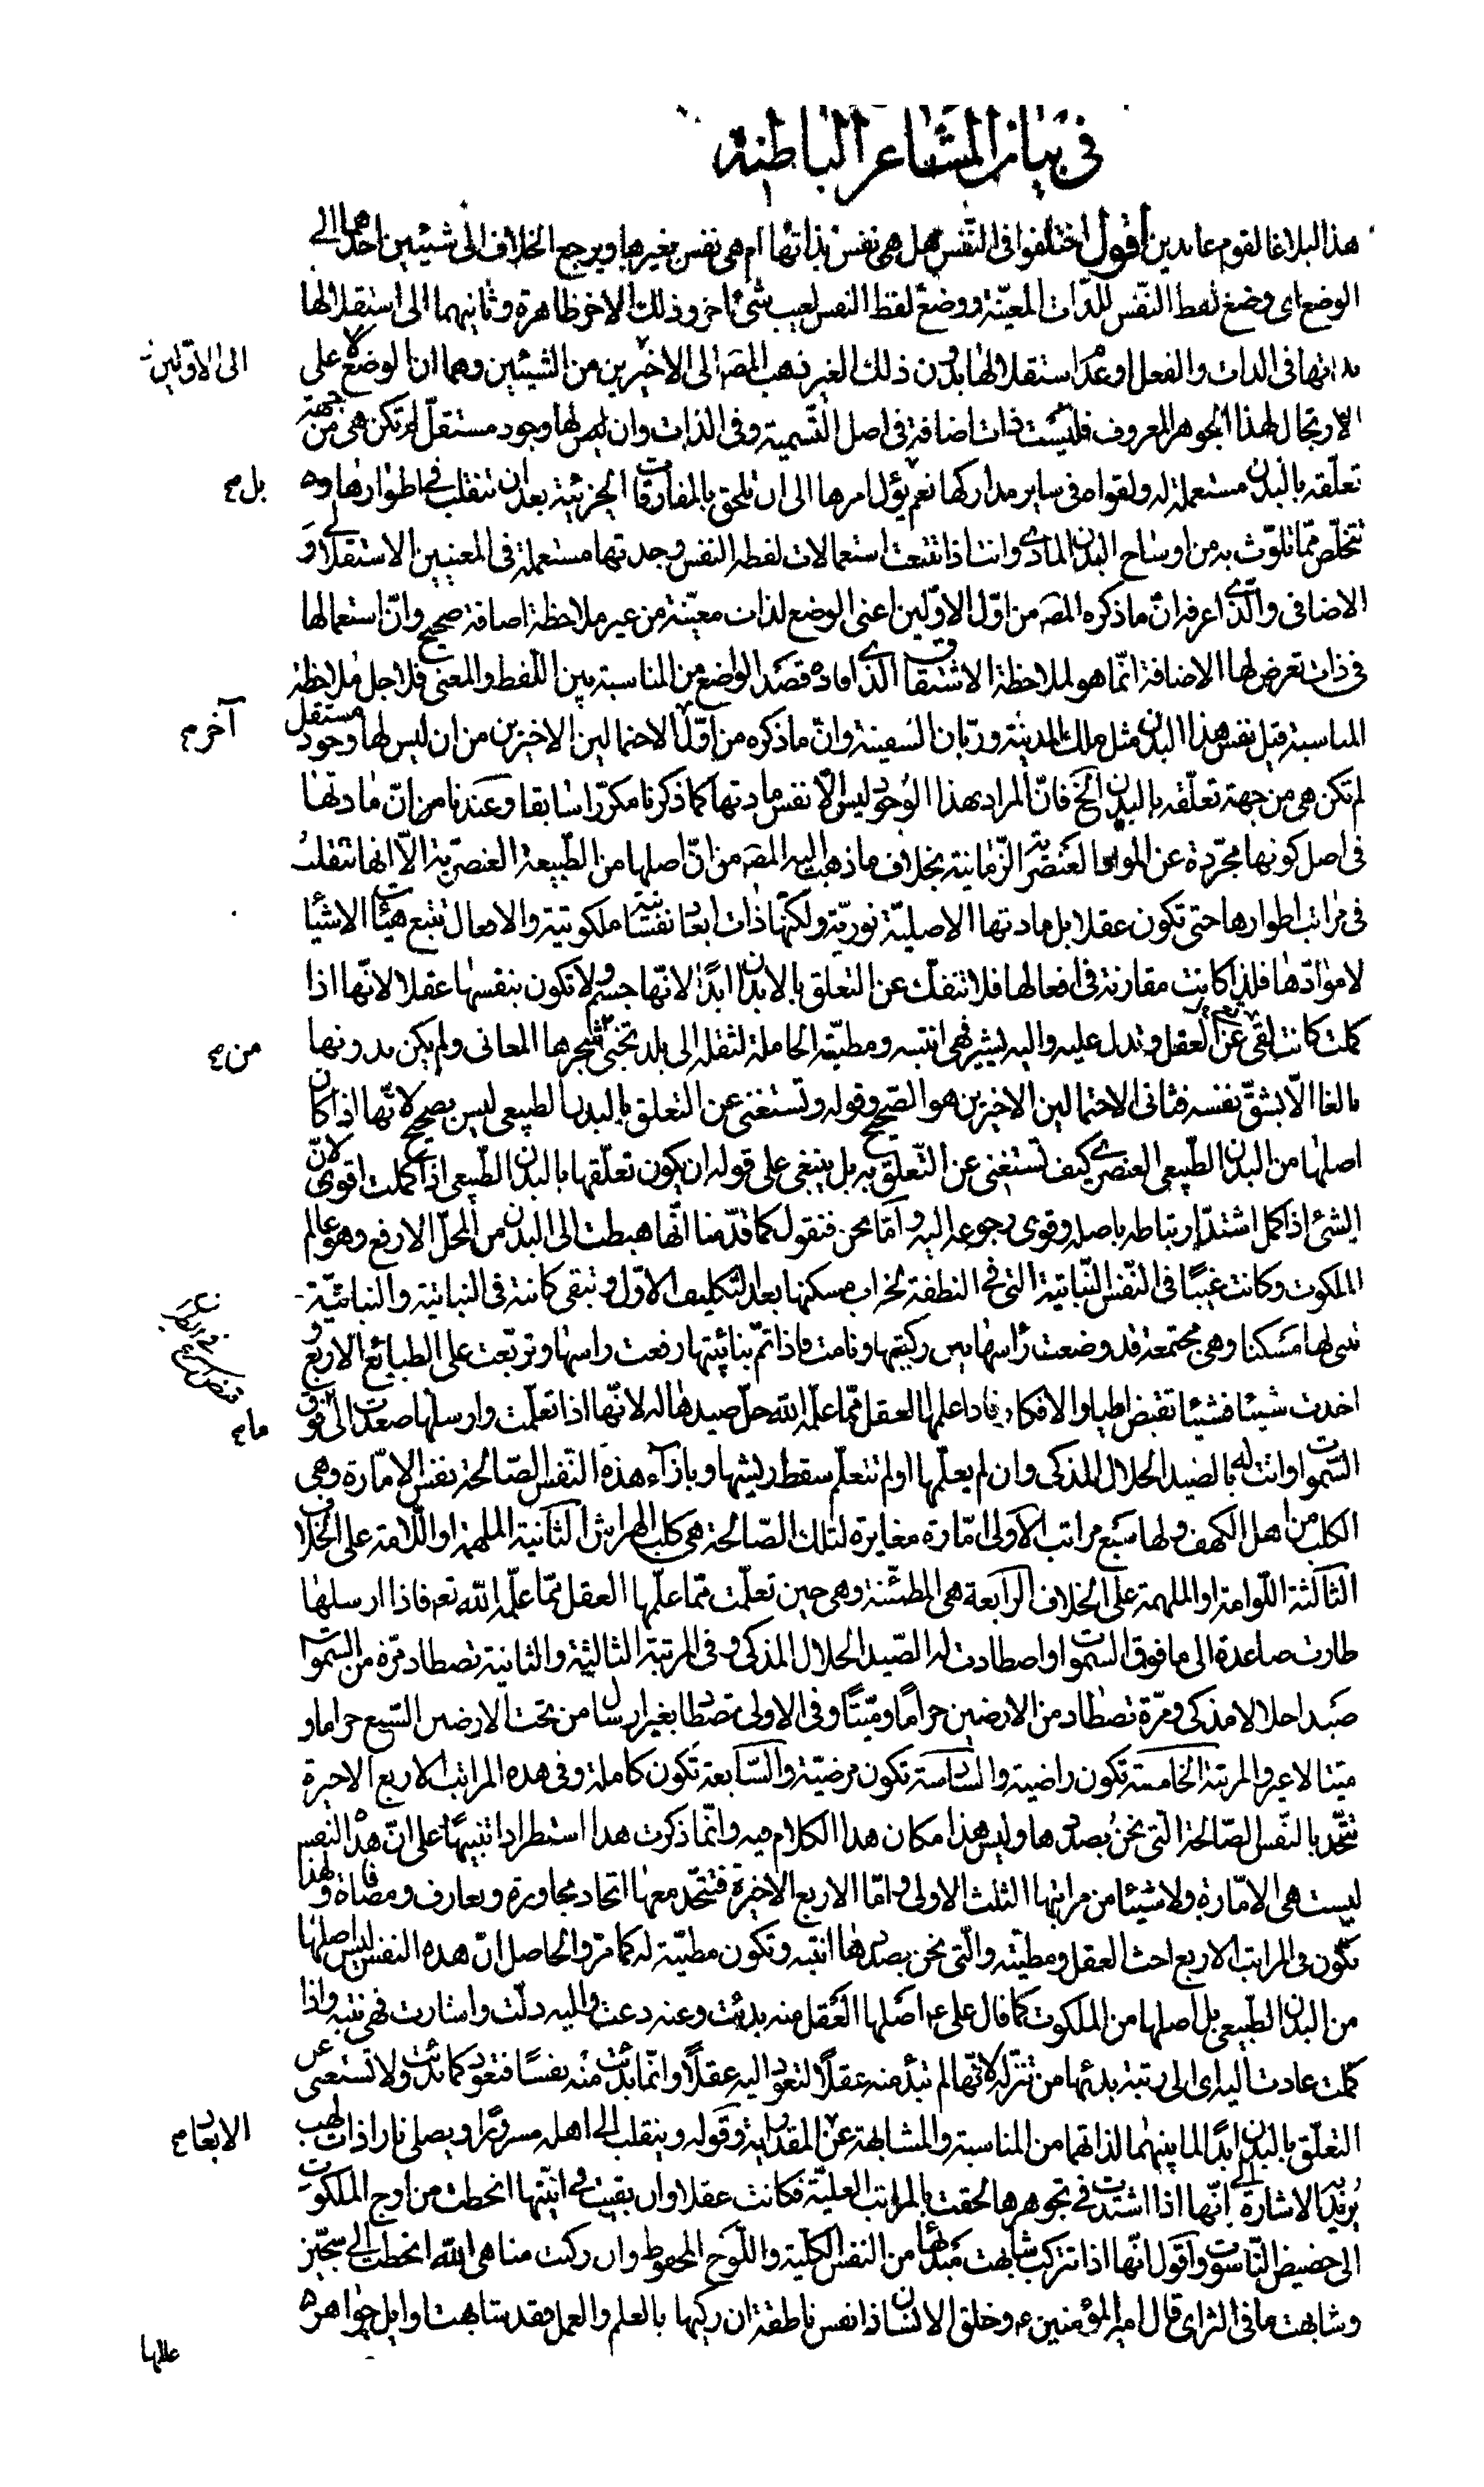 في بيان المشاعر الباطنة
هذا لبلاغا لقوم عابدين اقول اختلفوا في النّفس هل هي نفس بذاتها ام هي نفس بغيرها ويرجع الخلاف الى شيئين احدهما الى
الوضع اي وضع لفظ النّفس للذّات المعيّنة ووضع لفظ النفس لعيب شئ اخر وذلك الاخر ظاهرة وثانيهما الى استقلالها
بذاتها في الذات والفعل او عدم استقلالها بدون ذلك الغير ذهب المصَ الى الاخيرين من الشيئين وهما ان الوضع لا على
الى الاوّلين
الارتجال لهذا الجوهر المعروف فليست ذات اضافة في اصل التّسمية وفي الذات وان ليس لها وجود مستقلّ لم تكن هي من جهة
تعلّقه بالبدن مستعملة له ولقواه في ساير مداركها نعم يؤل امرها الى ان تلحق بالمفارقات الجزئية بعد ان تنقلب في اطوارها و
بل م
تتخلّص ممّا تلوّث به من اوساخ البدن المادي وانت اذا تتبعت استعمالات لفظ النفس وجدتها مستعملة في المعنيين الاستقلالي و
الاضافي والّذي اعرفه انّ ما ذكره المصَ من اوّل الاوّلين اعني الوضع لذات معيّنة من غير ملاحظة اضافة صحيح وانّ استعمالها
في ذات تعرض لها الاضافة انّما هو لملاحظة الاشتقاق الذي افاده قصد الواضع من المناسبة بين اللّفظ والمعنى فلاجل ملاحظة
المناسبة قيل نفس هذا البدن مثل ملك المدينة وربّان السفينة وانّ ما ذكره من اوّل الاحتمالين الاخيرين من ان ليس لها وجود مستقل
آخر م
لم تكن هي من جهة تعلّقه بالبدن الخ فانّ المراد بهذا الوجود ليس الّا نفس مادتها كما ذكرنا مكرّرا سابقا وعندنا من انّ مادتها
في اصل كونها مجرّدة عن المواد العنصرية الزّمانية بخلاف ما ذهب اليه المصَ من انّ اصلها من الطّبيعة العنصريّة الّا انها تتقلب
في مراتب اطوارها حتى تكون عقلا بل مادتها الاصليّة نوريّة ولكنّها ذات ابعاد نفسانية ملكوتية والافعال تتبع هيئات الاشيا
لا موادّها فلذا كانت مقارنة في افعالها فلا تنفك عن التعلق بالابدان ابدًا لانّها جسم ولا تكون بنفسها عقلا لانّها اذا
كملت كانت عن العقل وتدل عليه واليه يشير فهي انيته ومطيّته الحاملة لثقله الى بلد تجتنى شجرها المعاني ولم يكن بدونها
من م
بالغا الّا بشقّ نفسه فثاني الاحتمالين الاخيرين هو الصّحيح وقوله وتستغني عن التعلق بالبدن الطبيعي ليس بصحيح لانّها اذا كان
اصلها من البدن الطّبيعي العنصري كيف تستغني عن التّعلّق به بل ينبغي على قوله ان يكون تعلّقها بالبدن الطّبيعي اذا كملت اقوى لانّ
الشئ اذا كمل اشتدّ ارتباطه باصله وقوى رجوعه اليه وامّا نحن فنقول كما قدّمنا انّها هبطت الى البدن من المحلّ الارفع وهو عالم
الملكوت وكانت غيبًا في النّفس النّباتية التي في النطفة لخراب مسكنها بعد التكليف الاوّل وتبقى كامنة في النباتية والنباتيّة
تبنى لها مسكنا وهي مجتمعة قد وضعت رأسها بين ركبتيها ونامت فاذا تمّ بنائيتها رفعت راسها وتربّعت على الطبائع الاربع و
اخذت شيئا فشيئا تقبض اطيار الافكار فاذا علمها العقل ممّا علّمه الله حلّ صيدها له لانّها اذا تعلّمت وارسلها صعدت الى فوق
ما م
السّموات واتت له بالصّيد الحلال المذكى وان لم يعلّمها او لم تتعلّم سقط ريشها وبازآء هذه النّفس الصّالحة نفس الامّارة وهي
الكلب من اهل الكهف ولها سبع مراتب الاولى امّارة مغايرة لتلك الصّالحة هي كلب الهراش الثانية الملهمة او اللّامة على الخلاف
الثالثة اللّوامة او الملهمة على الخلاف الرابعة هي المطمئنّة وهي حين تعلّمت ممّا علّمها العقل ممّا علّمه الله تعم فاذا ارسلها
طارت صاعدة الى ما فوق السّموات او اصطادت له الصّيد الحلال المذكى وفي المرتبة الثالثية والثانية تصطاد مرّة من السموات
صيدا حلالا مذكى ومرّة تصطاد من الارضين حرامًا وميّتًا وفي الاولى تصطاد بغير ارسال من تحت الارضين السّبع حراما و
ميتا لا غير والمرتبة الخامسة تكون راضية والسّادسة تكون مرضيّة والسّابعة تكون كاملة وفي هذه المراتب الاربع الاخيرة
تتّحد بالنّفس الصّالحة الّتي نحن بصددها وليس هذا مكان هذا الكلام فيه وانّما ذكرت هذا استطرادا تنبيهًا على انّ هذه النفس
ليست هي الامّارة ولا شيئا من مراتبها الثلث الاولى وامّا الاربع الاخيرة فتتّحد معها اتحاد مجاورة وتعارف ومصافاة ولهذا
تكون في المراتب الاربع اخت العقل ومطيّته والّتي نحن بصددها انيّته وتكون مطيّة له كما مرّ والحاصل انّ هذه النفس ليس اصلها
من البدن الطّبيعي بل اصلها من الملكوت كما قال علي ع اصلها العقل منه بدئت وعنه دعت واليه دلّت واشارت فهي نيته واذا
كملت عادت اليه اي الى رتبة بدئها من تنزّله لانّها لم تبد منه عقلًا لتعود اليه عقلًا وانّما بدئت منه نفسًا فتعود كما بدئت ولا تستغنى عن
التعلّق بالبدن ابدًا لما بينهما لذاتهما من المناسبة والمشابهة عن المقدارية وقوله وينقلب الى اهله مسرورًا ويصلى نارا ذات لهب
الابعاد م
يريد به الاشارة الى انّها اذا اشتدّت في تجوهرها لحقت بالمراتب العليّة فكانت عقلا وان بقيت في انيّتها انحطت من اوج الملكوت
الى حضيض النّاسوت واقول انّها اذا تزكت شابهت مبدئها من النفس الكلّية واللّوح المحفوظ وان ركبت مناهي الله انحطت الى سجّين
وشابهت ما في الثرى قال امير المؤمنين ع وخلق الانسان ذا نفس ناطقة ان زكيها بالعلم والعمل فقد شابهت اوايل جواهر
عللها